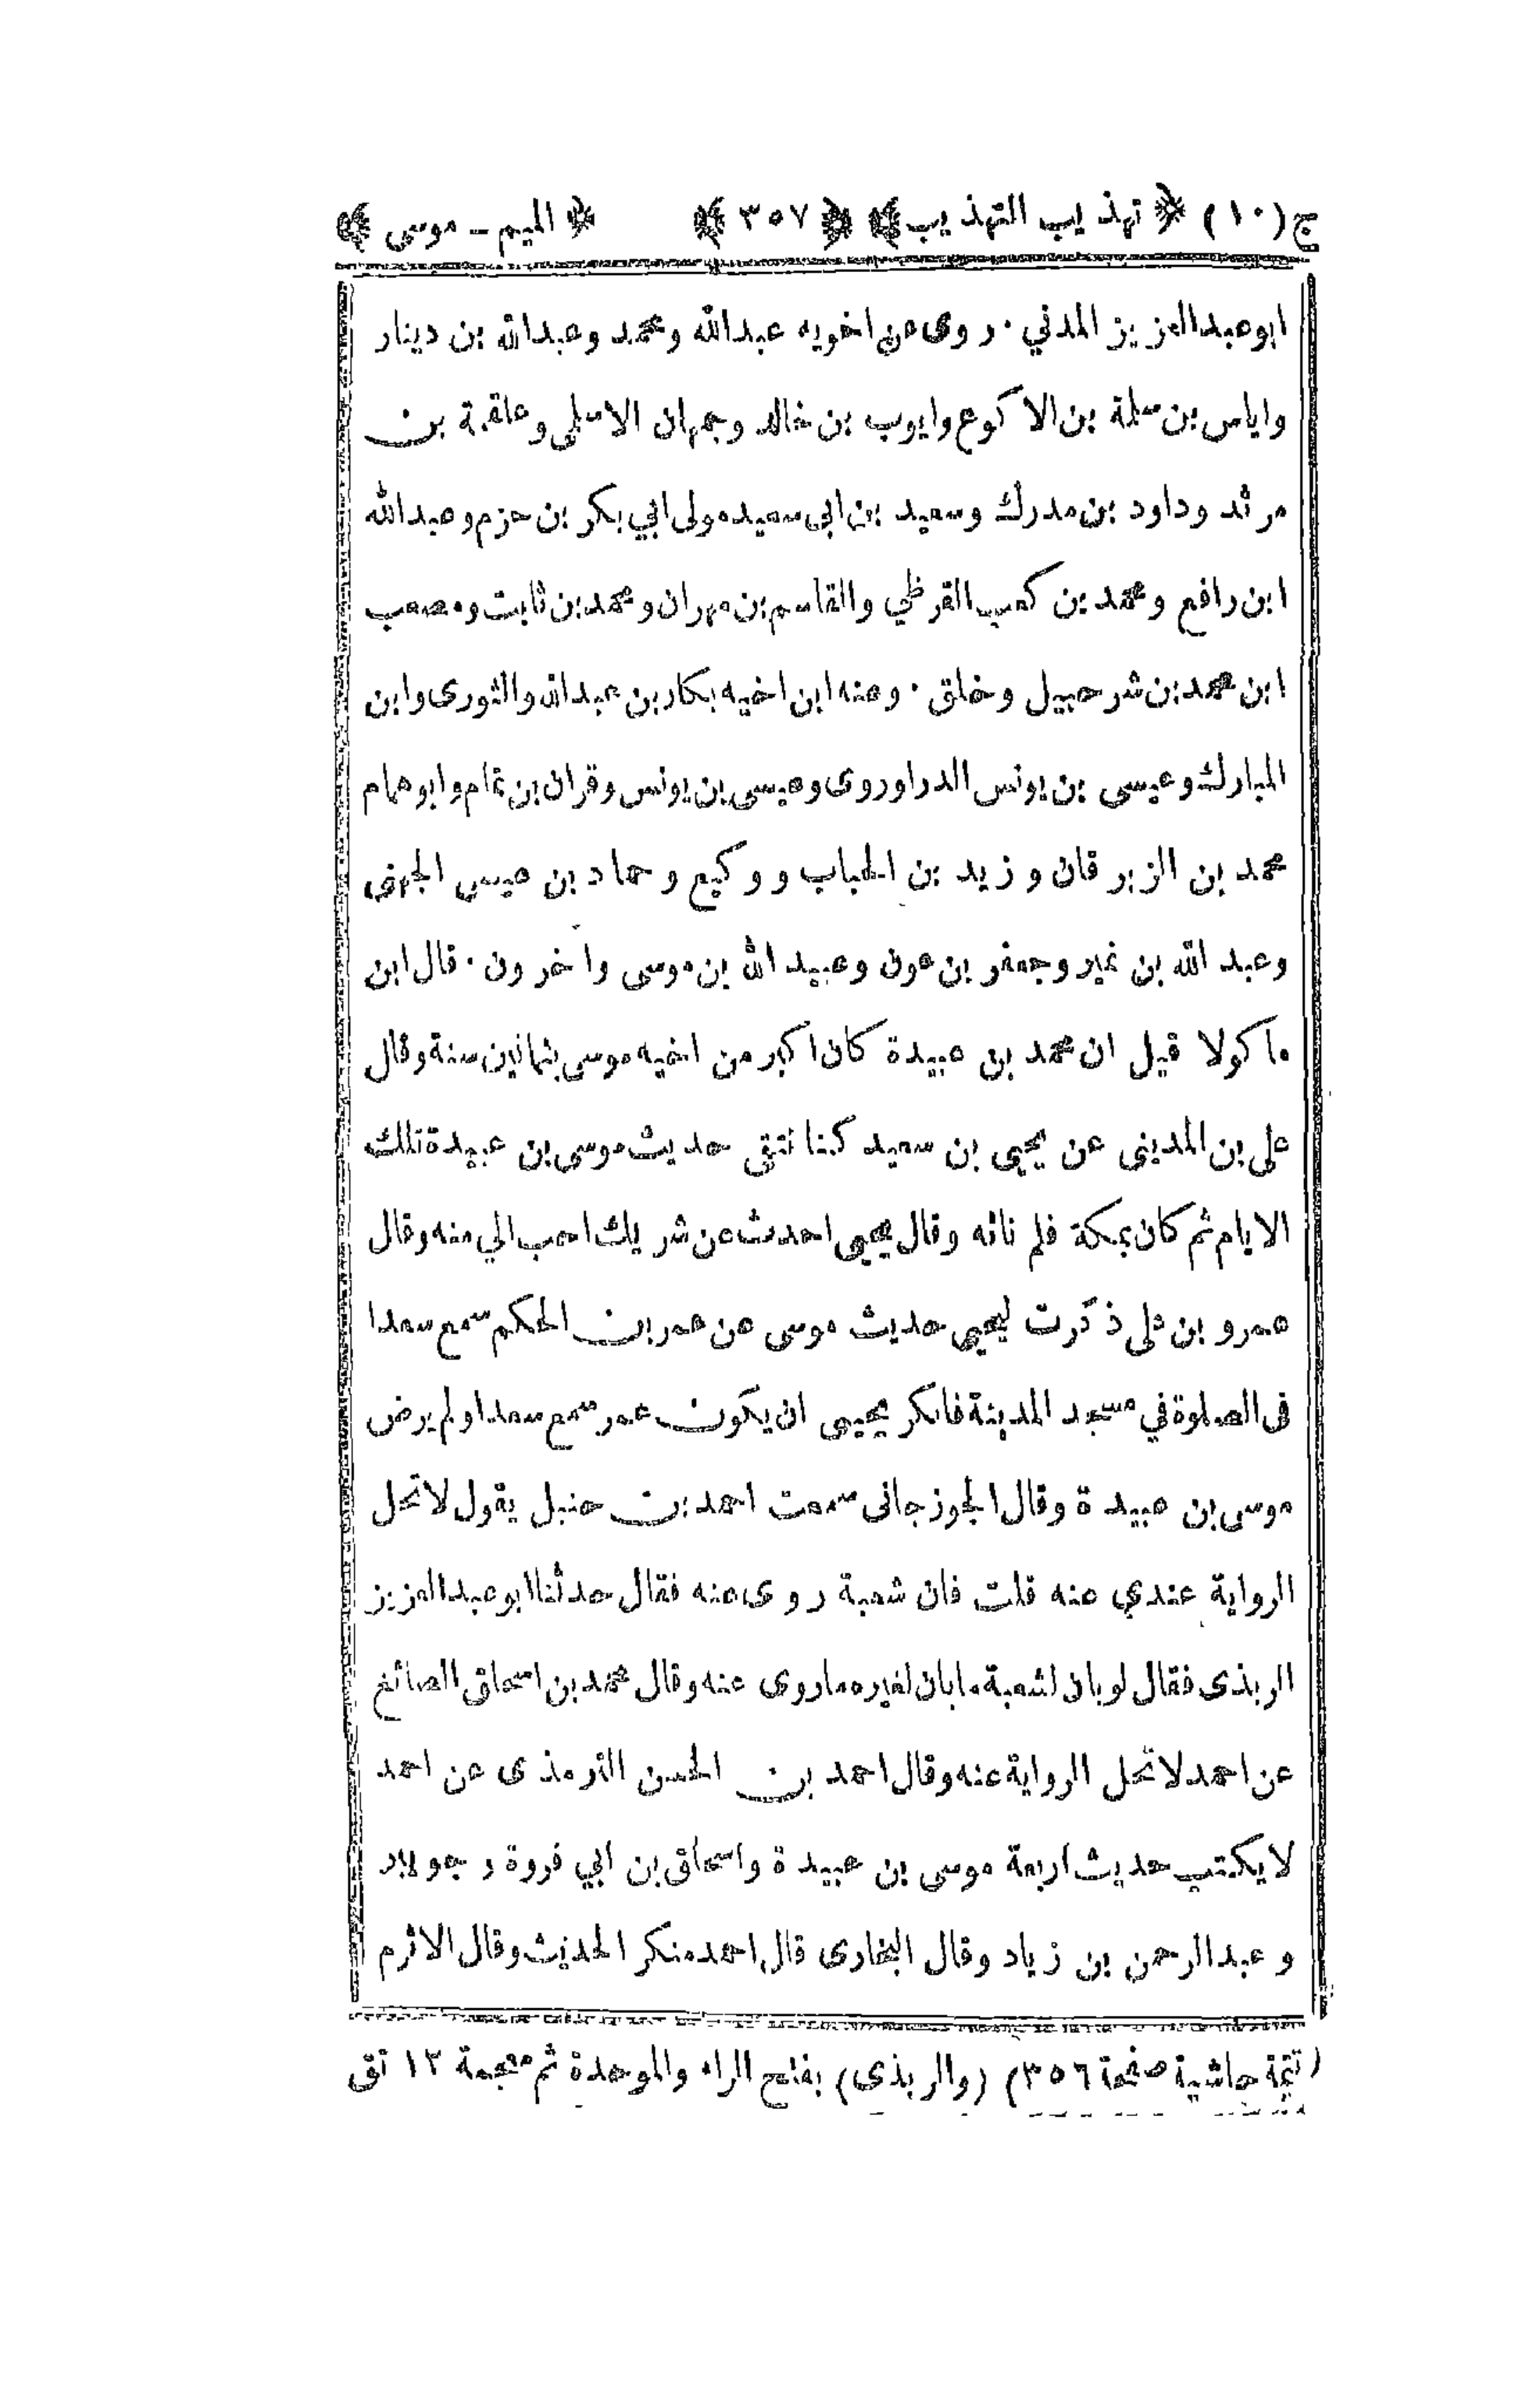 ج(١٠) ﴿ تهذيب التهذيب ﴾ ﴿ ٣٥٧ ﴾ ﴿ الميم - موسى ﴾
ابو عبد العزيز المدني . روى عن اخويه عبد الله ومحمد وعبد الله بن دينار
واياس بن سلمة بن الاكوع وايوب بن خالد وجمهان الاسلمى وعلقمة بن
مرثد وداود بن مدرك وسعيد بن ابى سعيد مولى ابي بكر بن حزم وعبد الله
ابن رافع ومحمد بن كعب القرظي والقاسم بن مهران ومحمد بن ثابت ومصعب
ابن محمد بن شرحبيل وخلق . وعنه ابن اخيه بكار بن عبد الله والثورى وابن
المبارك وعيسى بن يونس الدراوروى وعيسى بن يونس وقران بن تمام وابو همام
محمد بن الزبرقان وزيد بن الحباب ووكيع وحماد بن عيسى الجهنى
وعبد الله بن نمير وجعفر بن عون وعبيد الله بن موسى وآخرون . قال ابن
ماكولا قيل ان محمد بن عبيدة كان اكبر من اخيه موسى بثمانين سنة وقال
على بن المدينى عن يحيى بن سعيد كنا نتقى حديث موسى بن عبيدة تلك
الايام ثم كان بمكة فلم ناته وقال يحيى احدث عن شريك احب الي منه وقال
عمرو بن على ذكرت ليحيى حديث موسى عن عمر بن الحكم سمع سعدا
فى الصلوة في مسجد المدينة فانكر يحيى ان يكون عمر سمع سعدا ولم يرض
موسى بن عبيدة وقال الجوزجانى سمعت احمد بن حنبل يقول لا تحل
الرواية عندي عنه قلت فان شعبة روى عنه فقال حدثنا ابو عبد العزيز
الربذى فقال لو بان لشعبة ما بان لغيره ما روى عنه وقال محمد بن اسحاق الصائغ
عن احمد لا تحل الرواية عنه وقال احمد بن الحسن الترمذى عن احمد
لا يكتب حديث اربعة موسى بن عبيدة واسحاق بن ابي فروة وجويبر
وعبد الرحمن بن زياد وقال البخارى قال احمد منكر الحديث وقال الاثرم
(تتمة حاشية صفحة ٣٥٦) (والربذى) بفتح الراء والموحدة ثم معجمة ١٢ تق